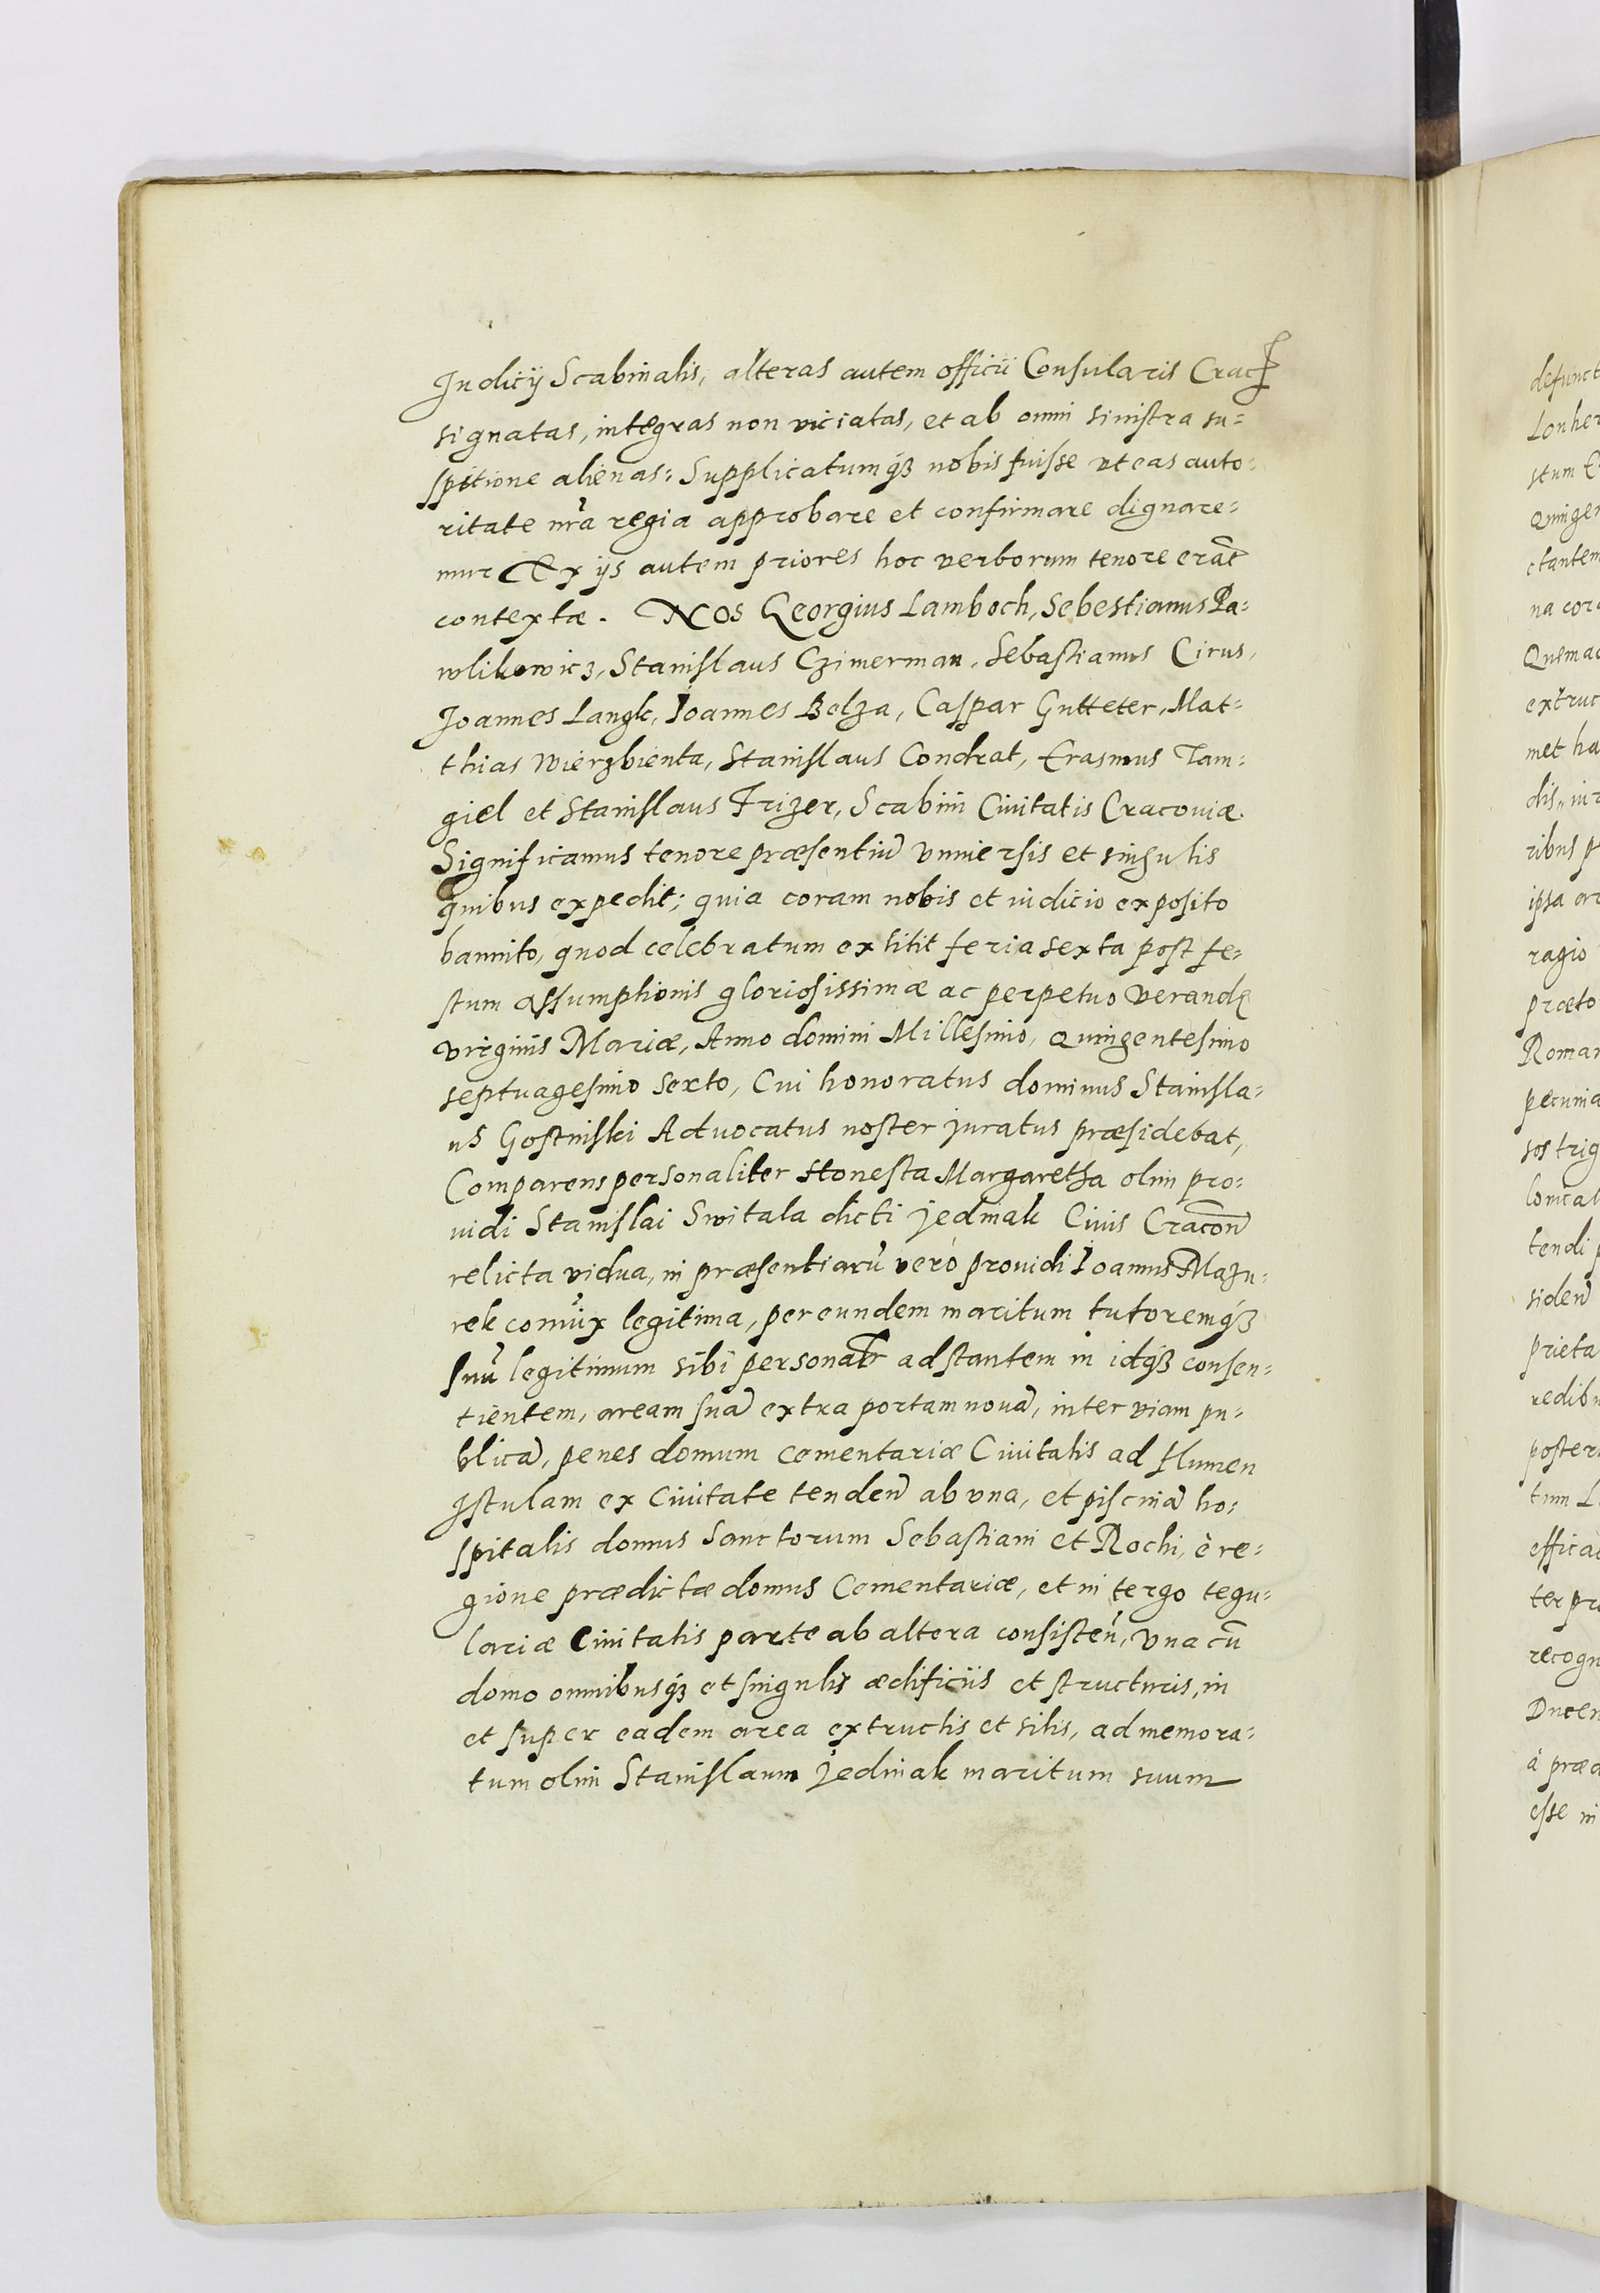 Iudicij Scabinalis, alteras autem officii Consularis Crac̃
signatas, integras non viciatas, et ab omni sinistra su=
spitione alienas: Supplicatumq́ʒ nobis fuisse vt eas auto=
ritate nr̃a regia approbare et confirmare dignare=
mur Ex ijs autem priores hoc verborum tenore erãt
contextæ. Nos Georgius Lamboch, Sebestianus Pa=
wlikowicz, Stanislaus Czimerman, Sebastianus Cirus,
Joannes Langk, Joannes Belza, Caspar Gutteter, Mat=
thias Wierzbienta, Stanislaus Condrat, Erasmus Tam=
giel et Stanislaus Frizer, Scabini Ciuitatis Cracouiæ.
Significamus tenore præsentiũ vniuersis et singulis
quibus expedit; quia coram nobis et iudicio exposito
bannito, quod celebratum extitit feria sexta post fe=
stum Assumptionis gloriosissimæ ac perpetuo verandę
virginis Mariæ, Anno domini Millesimo, Quingentesimo
septuagesimo sexto, Cui honoratus dominus Stanisla=
us Gostinski Aduocatus noster juratus præsidebat,
Comparens personaliter Honesta Margaretha olim pro=
uidi Stanislai Switala dicti Jedinak Ciuis Cracoñ
relicta vidua, in præsentiarũ verò prouidi Joannis Mazu=
rek coniũx legitima, per eundem maritum tutoremq́ʒ
suũ legitimum sibi personalr̃ adstantem in idq́ʒ consen=
tientem, aream suã extra portam nouã, inter viam pu=
blicã, penes domum Cementariæ Ciuitatis ad flumen
Istulam ex Ciuitate tendeñ ab vna, et piscinã ho=
spitalis domus Sanctorum Sebastiani et Rochi, è re=
gione prædictæ domus Cementariæ, et in tergo tegu=
lariæ Ciuitatis parte ab altera consisteñ, vna cũ
domo omnibusq́ʒ et singulis ædificiis et structuris, in
et super eadem area extructis et sitis, ad memora=
tum olim Stanislaum Jedinak maritum suum
defunct
Lonher
stum
Quinger
ctantem
na cor
Quemad
extruc
met ha
dis, iur
ribus p
ipsa ar
ragio
præto
Roman
pecunia
sos trig
tendi p
sideñ
prieta
redibu
poster
effica
ter pr
recogn
Ducen
à præd
esse in